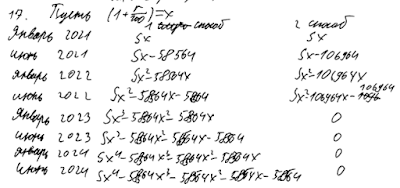 17. Пусть (1+r/100)=x
1 способ 2 способ
Январь 2021 Sx Sx
июнь 2021 Sx-58564 Sx-106964
январь 2022 Sx²-58564x Sx²-106964x
июнь 2022 Sx²-58564x-58564 Sx²-106964x-106964
Январь 2023 Sx³-58564x²-58564x 0
июнь 2023 Sx³-58564x²-58564x-58564 0
январь 2024 Sx⁴-58564x³-58564x²-58564x 0
июнь 2024 Sx⁴-58564x³-58564x²-58564x-58564 0